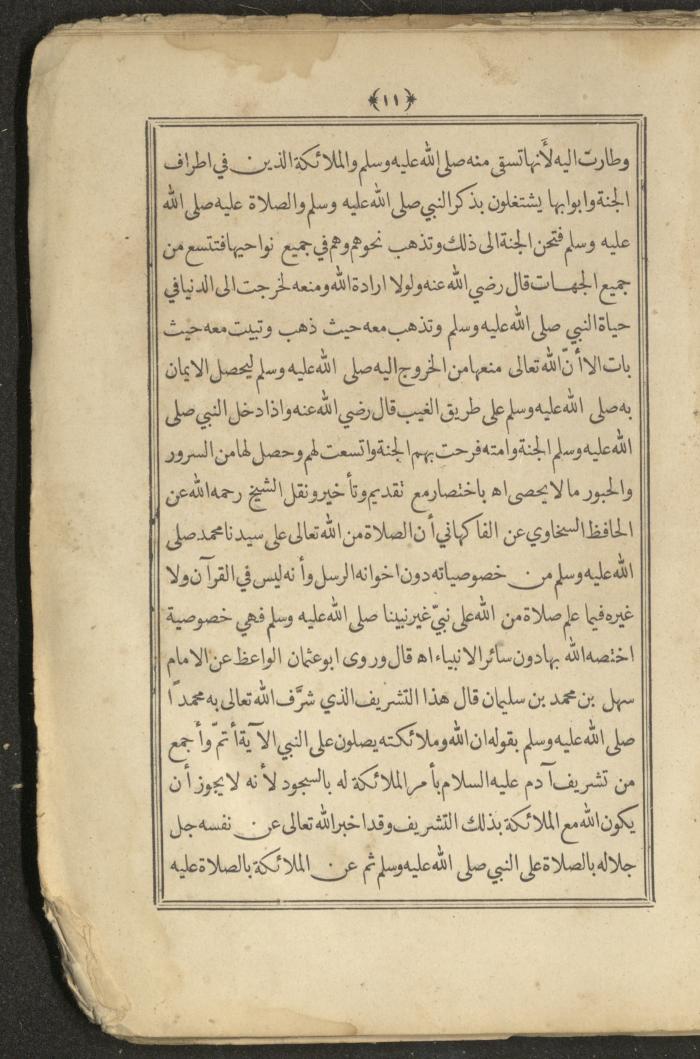 ﴿١١﴾
وطارت اليه لأنها تسقى منه صلى الله عليه وسلم والملائكة الذين في اطراف
الجنة وابوابها يشتغلون بذكر النبي صلى الله عليه وسلم والصلاة عليه صلى الله
عليه وسلم فتحن الجنة الى ذلك وتذهب نحوهم وهم في جميع نواحيها فتتسع من
جميع الجهات قال رضي الله عنه ولولا ارادة الله ومنعه لخرجت الى الدنيا في
حياة النبي صلى الله عليه وسلم وتذهب معه حيث ذهب وتبيت معه حيث
بات الا أنّ الله تعالى منعها من الخروج اليه صلى الله عليه وسلم ليحصل الايمان
به صلى الله عليه وسلم على طريق الغيب قال رضي الله عنه واذا دخل النبي صلى
الله عليه وسلم الجنة وامته فرحت بهم الجنة واتسعت لهم وحصل لها من السرور
والحبور ما لا يحصى اه باختصار مع تقديم وتأخير ونقل الشيخ رحمه الله عن
الحافظ السخاوي عن الفاكهاني أن الصلاة من الله تعالى على سيدنا محمد صلى
الله عليه وسلم من خصوصياته دون اخوانه الرسل وأنه ليس في القرآن ولا
غيره فيما علم صلاة من الله على نبيّ غير نبينا صلى الله عليه وسلم فهي خصوصية
اختصه الله بها دون سائر الانبياء اه قال وروى ابو عثمان الواعظ عن الامام
سهل بن محمد بن سليمان قال هذا التشريف الذي شرَّف الله تعالى به محمدًا
صلى الله عليه وسلم بقوله ان الله وملائكته يصلون على النبي الآية أتمّ وأجمع
من تشريف آدم عليه السلام بأمر الملائكة له بالسجود لأنه لا يجوز أن
يكون الله مع الملائكة بذلك التشريف وقد اخبر الله تعالى عن نفسه جل
جلاله بالصلاة على النبي صلى الله عليه وسلم ثم عن الملائكة بالصلاة عليه